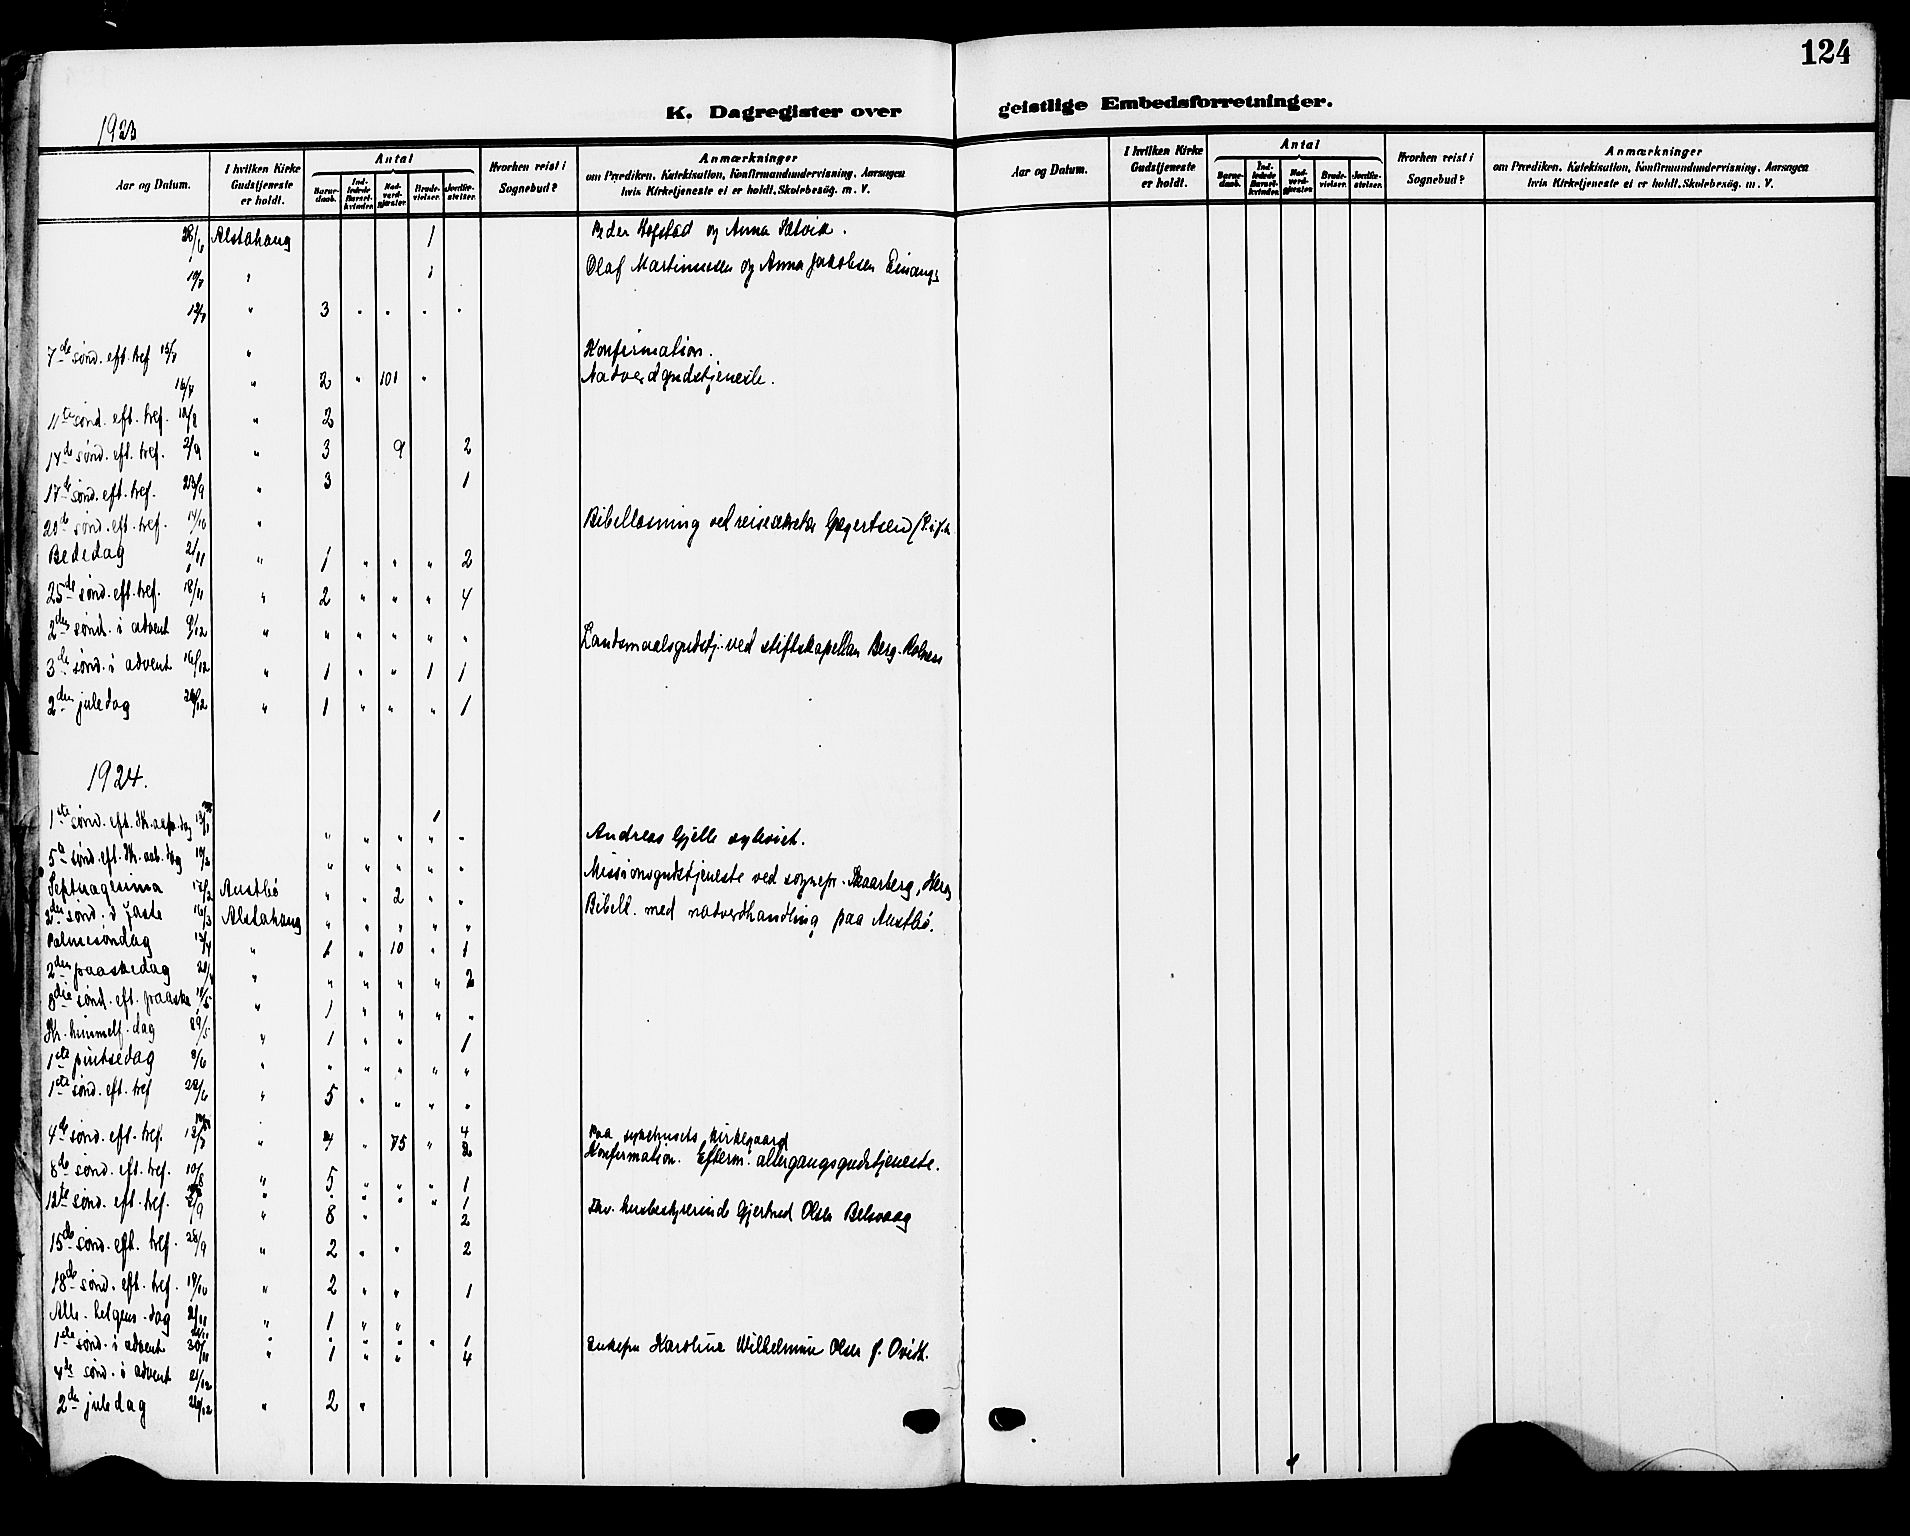 124
K. Dagregister over geistlige Embedsforretninger.
1923
Aar og Datum. I hvilken Kirke Gudstjeneste er holdt. Antal Barnedaab. Indledede Barselkvinder. Nadverdgjester. Brudevielser. Jordfæstelser. Hvorhen reist i Sognebud? Anmærkninger om Prædiken, Katekisation, Konfirmandundervisning, Aarsagen hvis Kirketjeneste ei er holdt, Skolebesøg. m. V.
Aar og Datum. I hvilken Kirke Gudstjeneste er holdt. Antal Barnedaab. Indledede Barselkvinder. Nadverdgjester. Brudevielser. Jordfæstelser. Hvorhen reist i Sognebud? Anmærkninger om Prædiken, Katekisation, Konfirmandundervisning, Aarsagen hvis Kirketjeneste ei er holdt, Skolebesøg. m. V.
28/6 Alstahaug 1 Peder Hofstad og Anna Sætvik.
" 1 Olaf Martinussen og Anna Jakobsen
" 3 " " " "
7de sønd. eft. tref. 15/7 " Konfirmation.
16/7 " 2 " 101 " Nadverdgudstjeneste.
11te sønd. eft. tref. " 2
14de sønd. eft. tref. 2/9 " 3 9 2
17de sønd. eft. tref. 23/9 " 3 1
20de sønd. eft. tref. 14/10 " Bibellæsning ved reisesekretær
Bededag 2/11 " 1 " " " 2
25de sønd. eft. tref. 18/11 " 2 " " " 4
2den sønd. i advent 9/12 " " " " " " Landsmaalsgudstj. ved stiftskapellan Berg-
3de sønd. i advent 16/12 " 1 " " 1 1
2den juledag 26/12 " 1 " " " 1
1924.
1ste sønd. eft. Kr. aab. dag 13/1 1
" " " " " Andreas Gjelle
5te sønd. eft. Kr. aab. dag 10/2 " " " " " Missionsgudstjeneste ved sognepr. Skaarberg, Herø
Septuagesima 17/2 Austbø " " 2 " " Bibell. med nadverdhandling paa Austbø.
2den sønd. i faste 16/3 Alstahaug " " " " "
Palmesøndag 13/4 " 1 " 10 " 1
2den paaskedag 21/4 " " " " " 2
3die sønd. eft. paaske " 1 " " " "
Kr. himmelf. dag 29/5 " 1 " " 1
1ste pintsedag 8/6 " " " " " "
1ste sønd. eft. tref 22/6 " 5 " " " "
4de sønd. eft. tref. 13/7 " 4 " 75 " 4 Paa sykehusets kirkegaard
2 Konfirmation. Efterm. altergangsgudstjeneste.
8de sønd. eft. tref. 10/8 " 5 " " " 1
" " " " " 1 Husbestyrerinde Gjertrud Olsen Belsvaag
12te sønd. eft. tref. " 8 " 2
15de sønd. eft. tref. 28/9 " 2 " " 2
18de sønd. eft. tref. 19/10 " 2 " " 1
Alle helgens dag 2/11 " 1 " "
" " " " " 1 Enkefru Karoline Wilhelmine Olsen f.
1ste sønd. i advent 30/11 " 1 " " 4
4de sønd. i advent 21/12
2de juledag 26/12 " 2 "